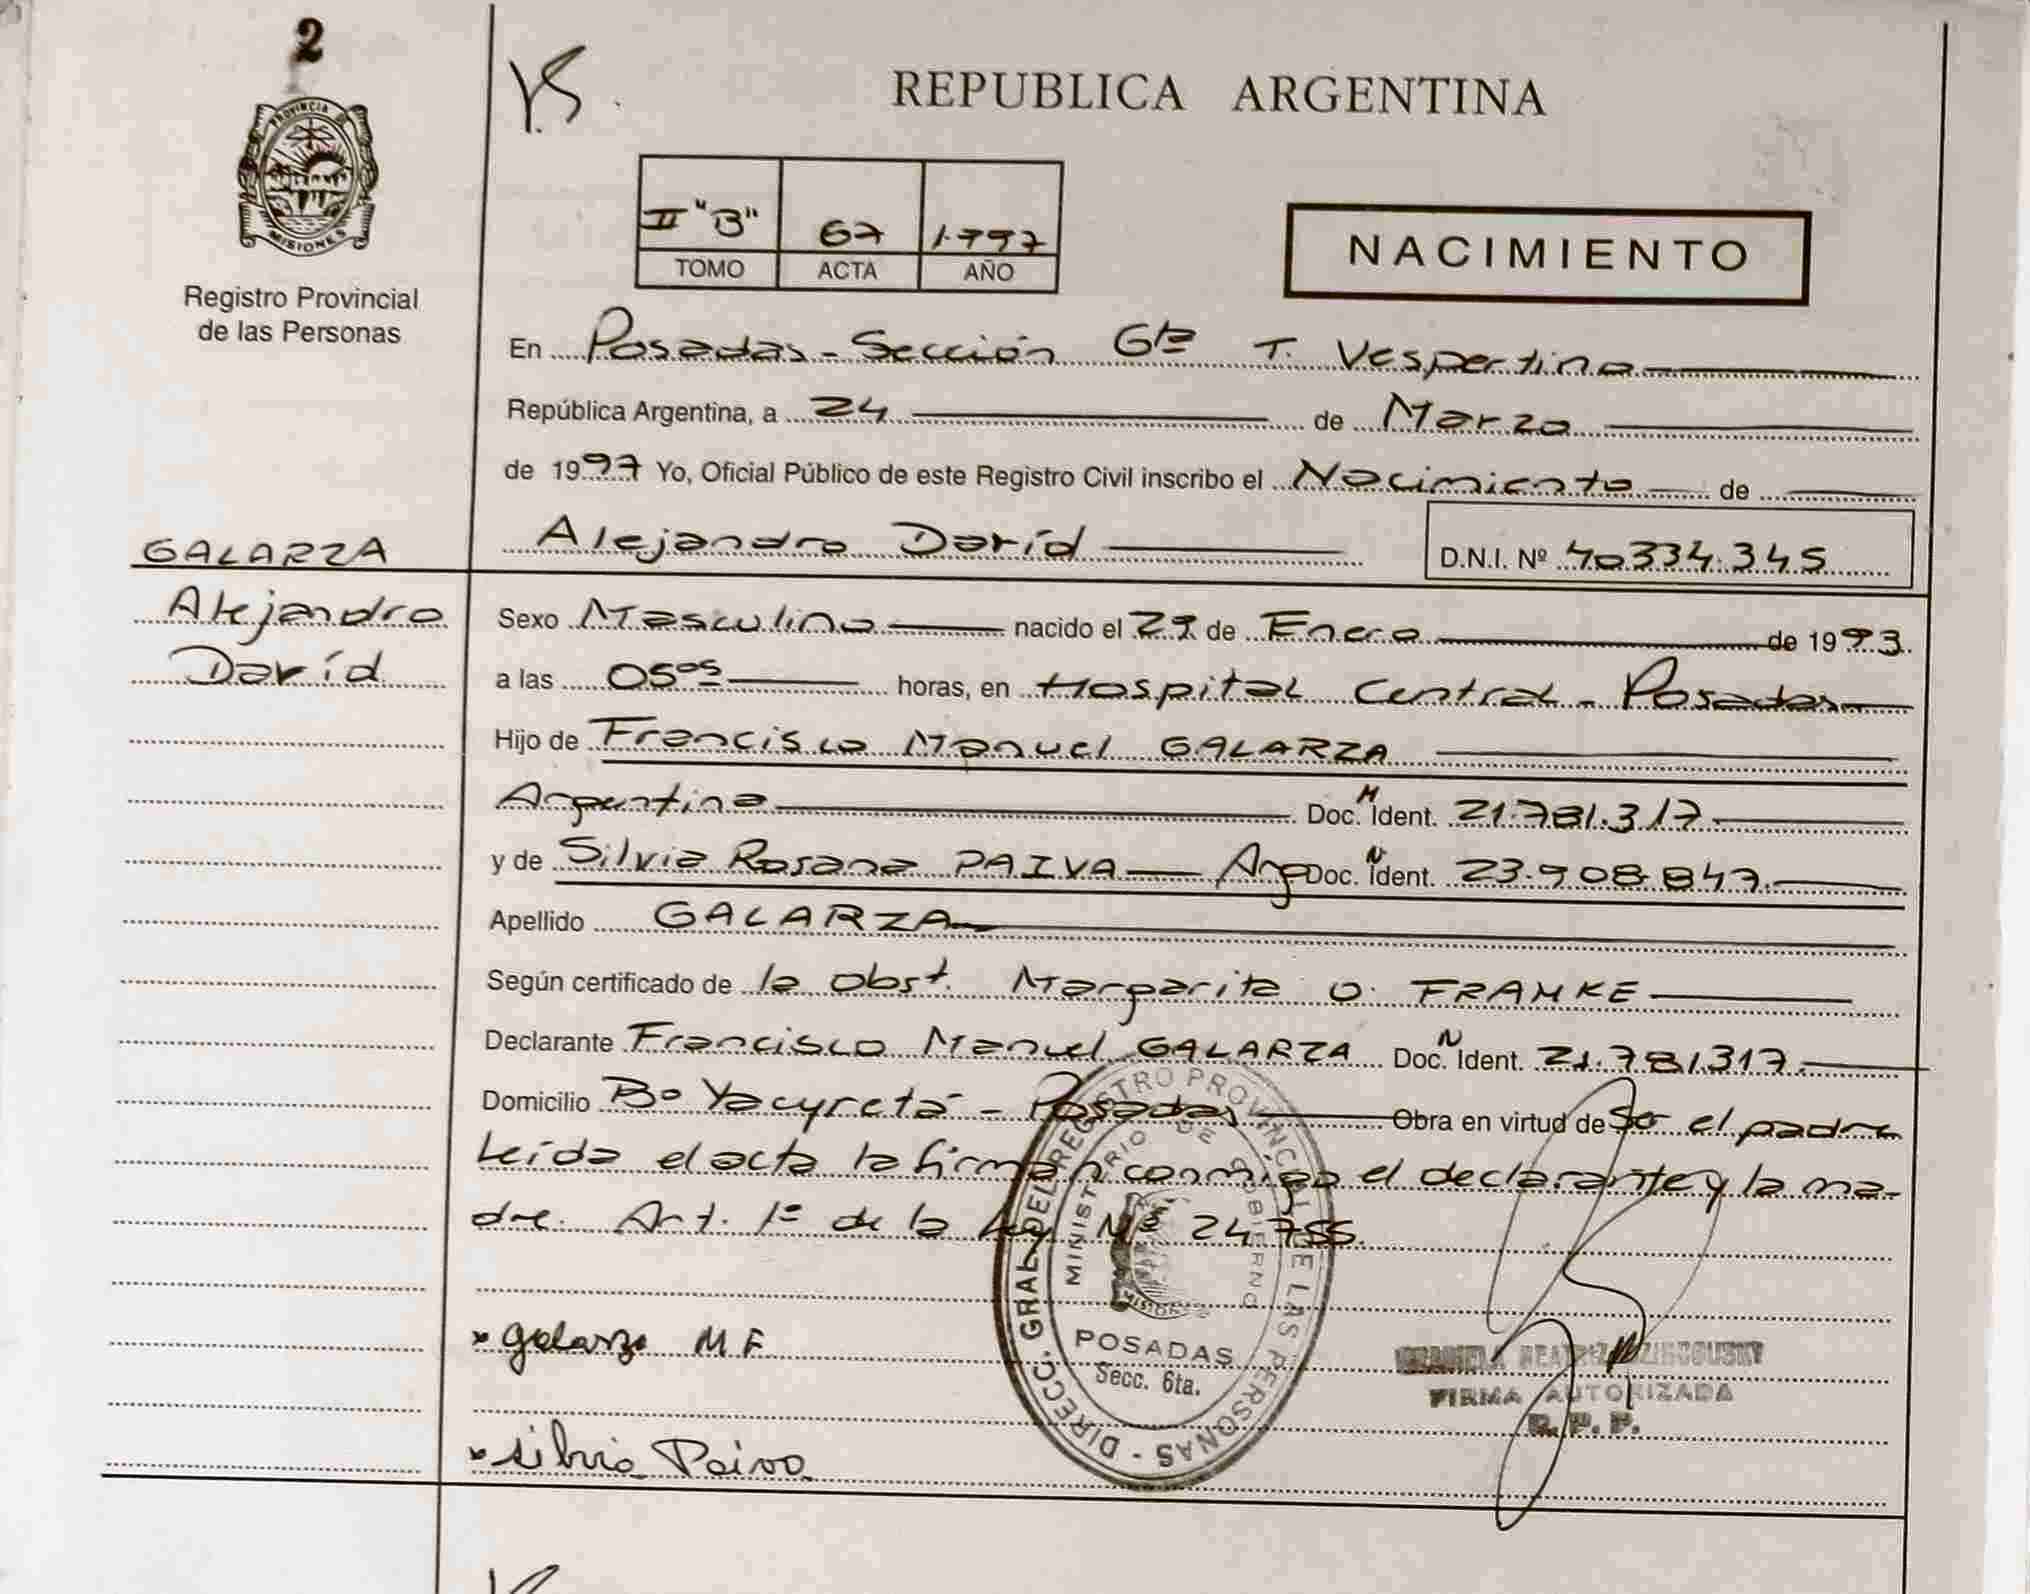 2
V.S.
REPUBLICA ARGENTINA
PROVINCIA DE
MISIONES
Registro Provincial
de las Personas
II "B" 67 1.997
TOMO ACTA AÑO
NACIMIENTO
En Posadas - Sección 6ta T. Vespertino
República Argentina, a 24 de Marzo
de 1997 Yo, Oficial Público de este Registro Civil inscribo el Nacimiento de
Alejandro David D.N.I. Nº 40334.345
GALARZA
Alejandro
David
Sexo Masculino nacido el 29 de Enero de 1993.
a las 05⁰⁵ horas, en Hospital Central - Posadas
Hijo de Francisco Manuel GALARZA
Argentino Doc. N Ident. 21.781.317
y de Silvia Rosana PAIVA Arg Doc. N Ident. 23.908.847.
Apellido GALARZA
Según certificado de la obst. Margarita O. FRANKE
Declarante Francisco Manuel GALARZA Doc. N Ident. 21.781.317.
Domicilio Bº Yacyretá - Posadas Obra en virtud de Ser el padre
Leída el acta la firman conmigo el declarante y la ma-
dre. Art. 1º de la Ley Nº 24.755.
DIRECC. GRAL. DEL REGISTRO PROVINCIAL DE LAS PERSONAS -
MINISTERIO DE GOBIERNO
MISIONES
POSADAS
Secc. 6ta.
x Galarza M F
x Silvia Paiva
BEATRIZ
FIRMA AUTORIZADA
R. P. P.